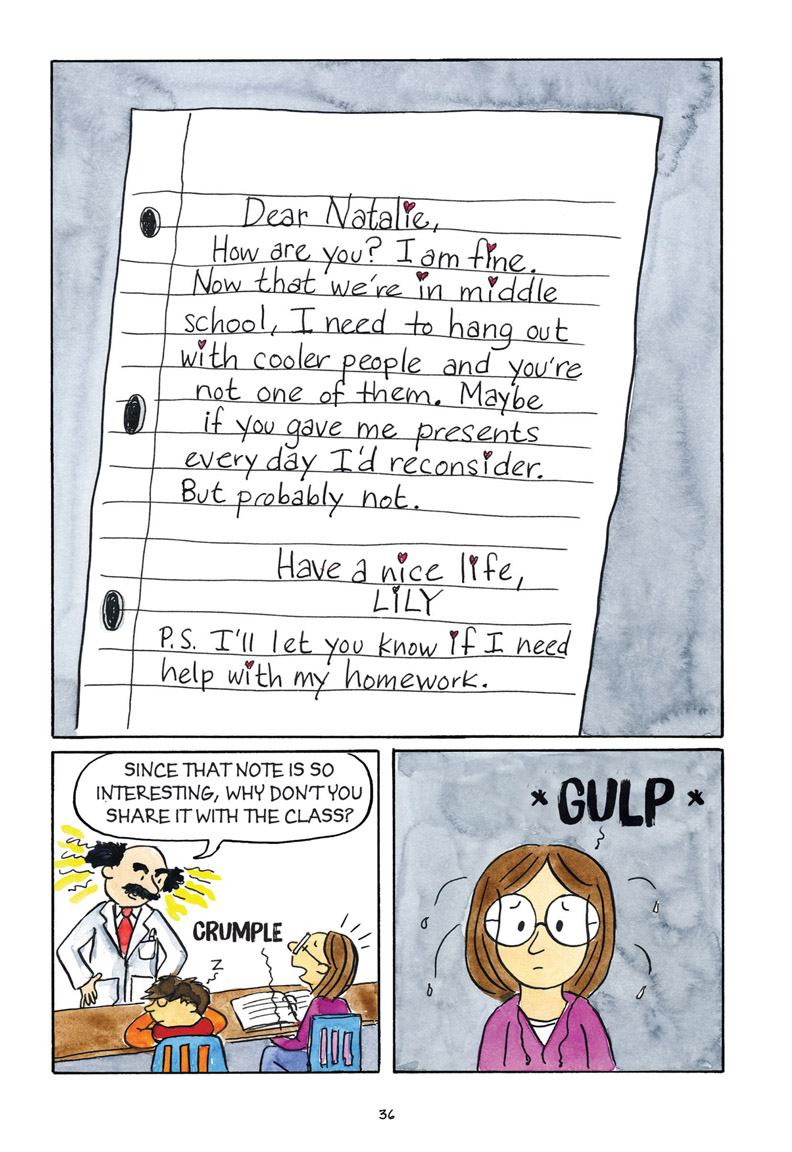 Dear Natalie,
How are you? I am fine.
Now that we're in middle
school, I need to hang out
with cooler people and you're
not one of them. Maybe
if you gave me presents
every day I'd reconsider.
But probably not.
Have a nice life,
LiLY
P.S. I'll let you know if I need
help with my homework.
SINCE THAT NOTE IS SO
INTERESTING, WHY DON'T YOU
SHARE IT WITH THE CLASS?
CRUMPLE
Z
* GULP *
36